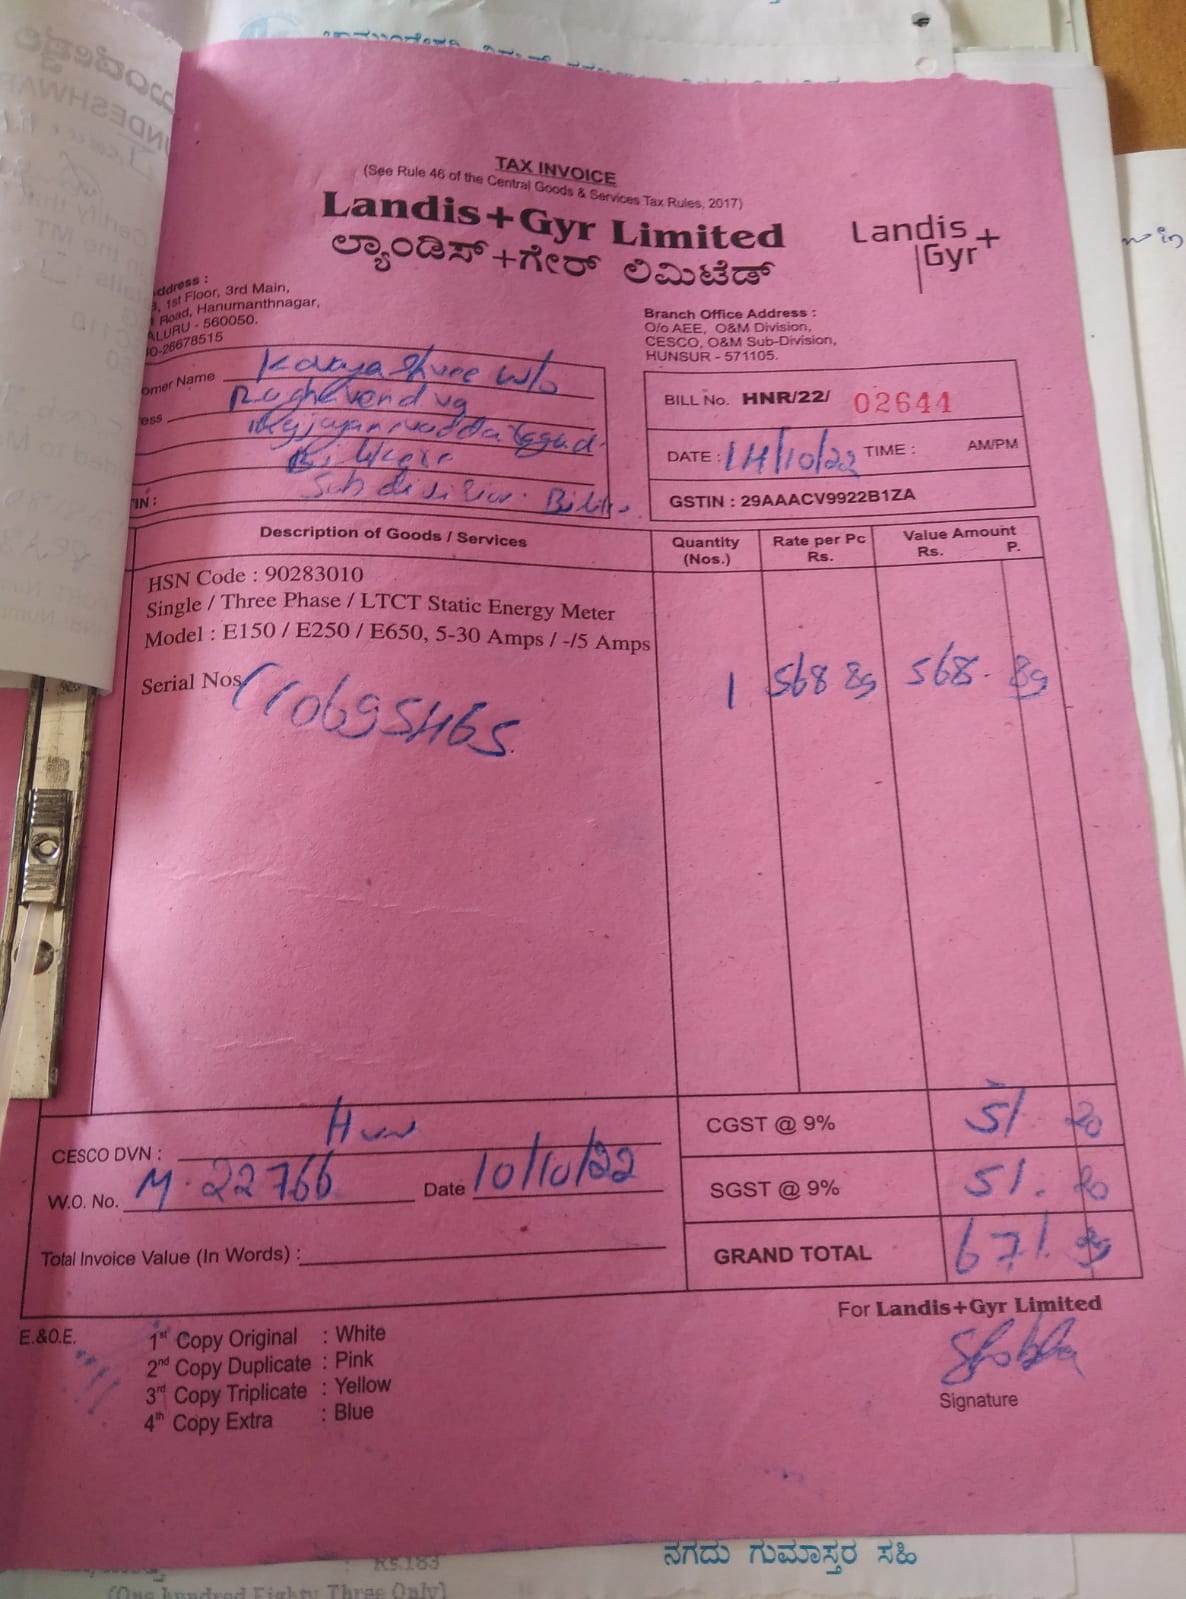 TAX INVOICE
(See Rule 46 of the Central Goods & Services Tax Rules, 2017)
Landis+Gyr Limited
ಲ್ಯಾಂಡಿಸ್+ಗೇರ್ ಲಿಮಿಟೆಡ್
Landis
Gyr+
ddress :
1st Floor, 3rd Main,
Road, Hanumanthnagar,
ALURU - 560050.
0-26678515
Branch Office Address :
O/o AEE, O&M Division,
CESCO, O&M Sub-Division,
HUNSUR - 571105.
omer Name Kavya Shree w/o
ess Raghavendra
Bilikere
Sub division. Bilik
IN :
BILL No. HNR/22/ 02644
DATE : 14/10/22 TIME : AM/PM
GSTIN : 29AAACV9922B1ZA
Description of Goods / Services Quantity (Nos.) Rate per Pc Rs. Value Amount Rs. P.
HSN Code : 90283010
Single / Three Phase / LTCT Static Energy Meter
Model : E150 / E250 / E650, 5-30 Amps / -/5 Amps
Serial Nos. 1 568 89 568. 89
CESCO DVN : Hun
W.O. No. M-22766 Date 10/10/22
Total Invoice Value (In Words) :
CGST @ 9% 51 20
SGST @ 9% 51. 20
GRAND TOTAL 671. 29
For Landis+Gyr Limited
Signature
E.&O.E.
1st Copy Original : White
2nd Copy Duplicate : Pink
3rd Copy Triplicate : Yellow
4th Copy Extra : Blue
ನಗದು ಗುಮಾಸ್ತರ ಸಹಿ
: Rs.183
(One hundred Eighty Three Only)